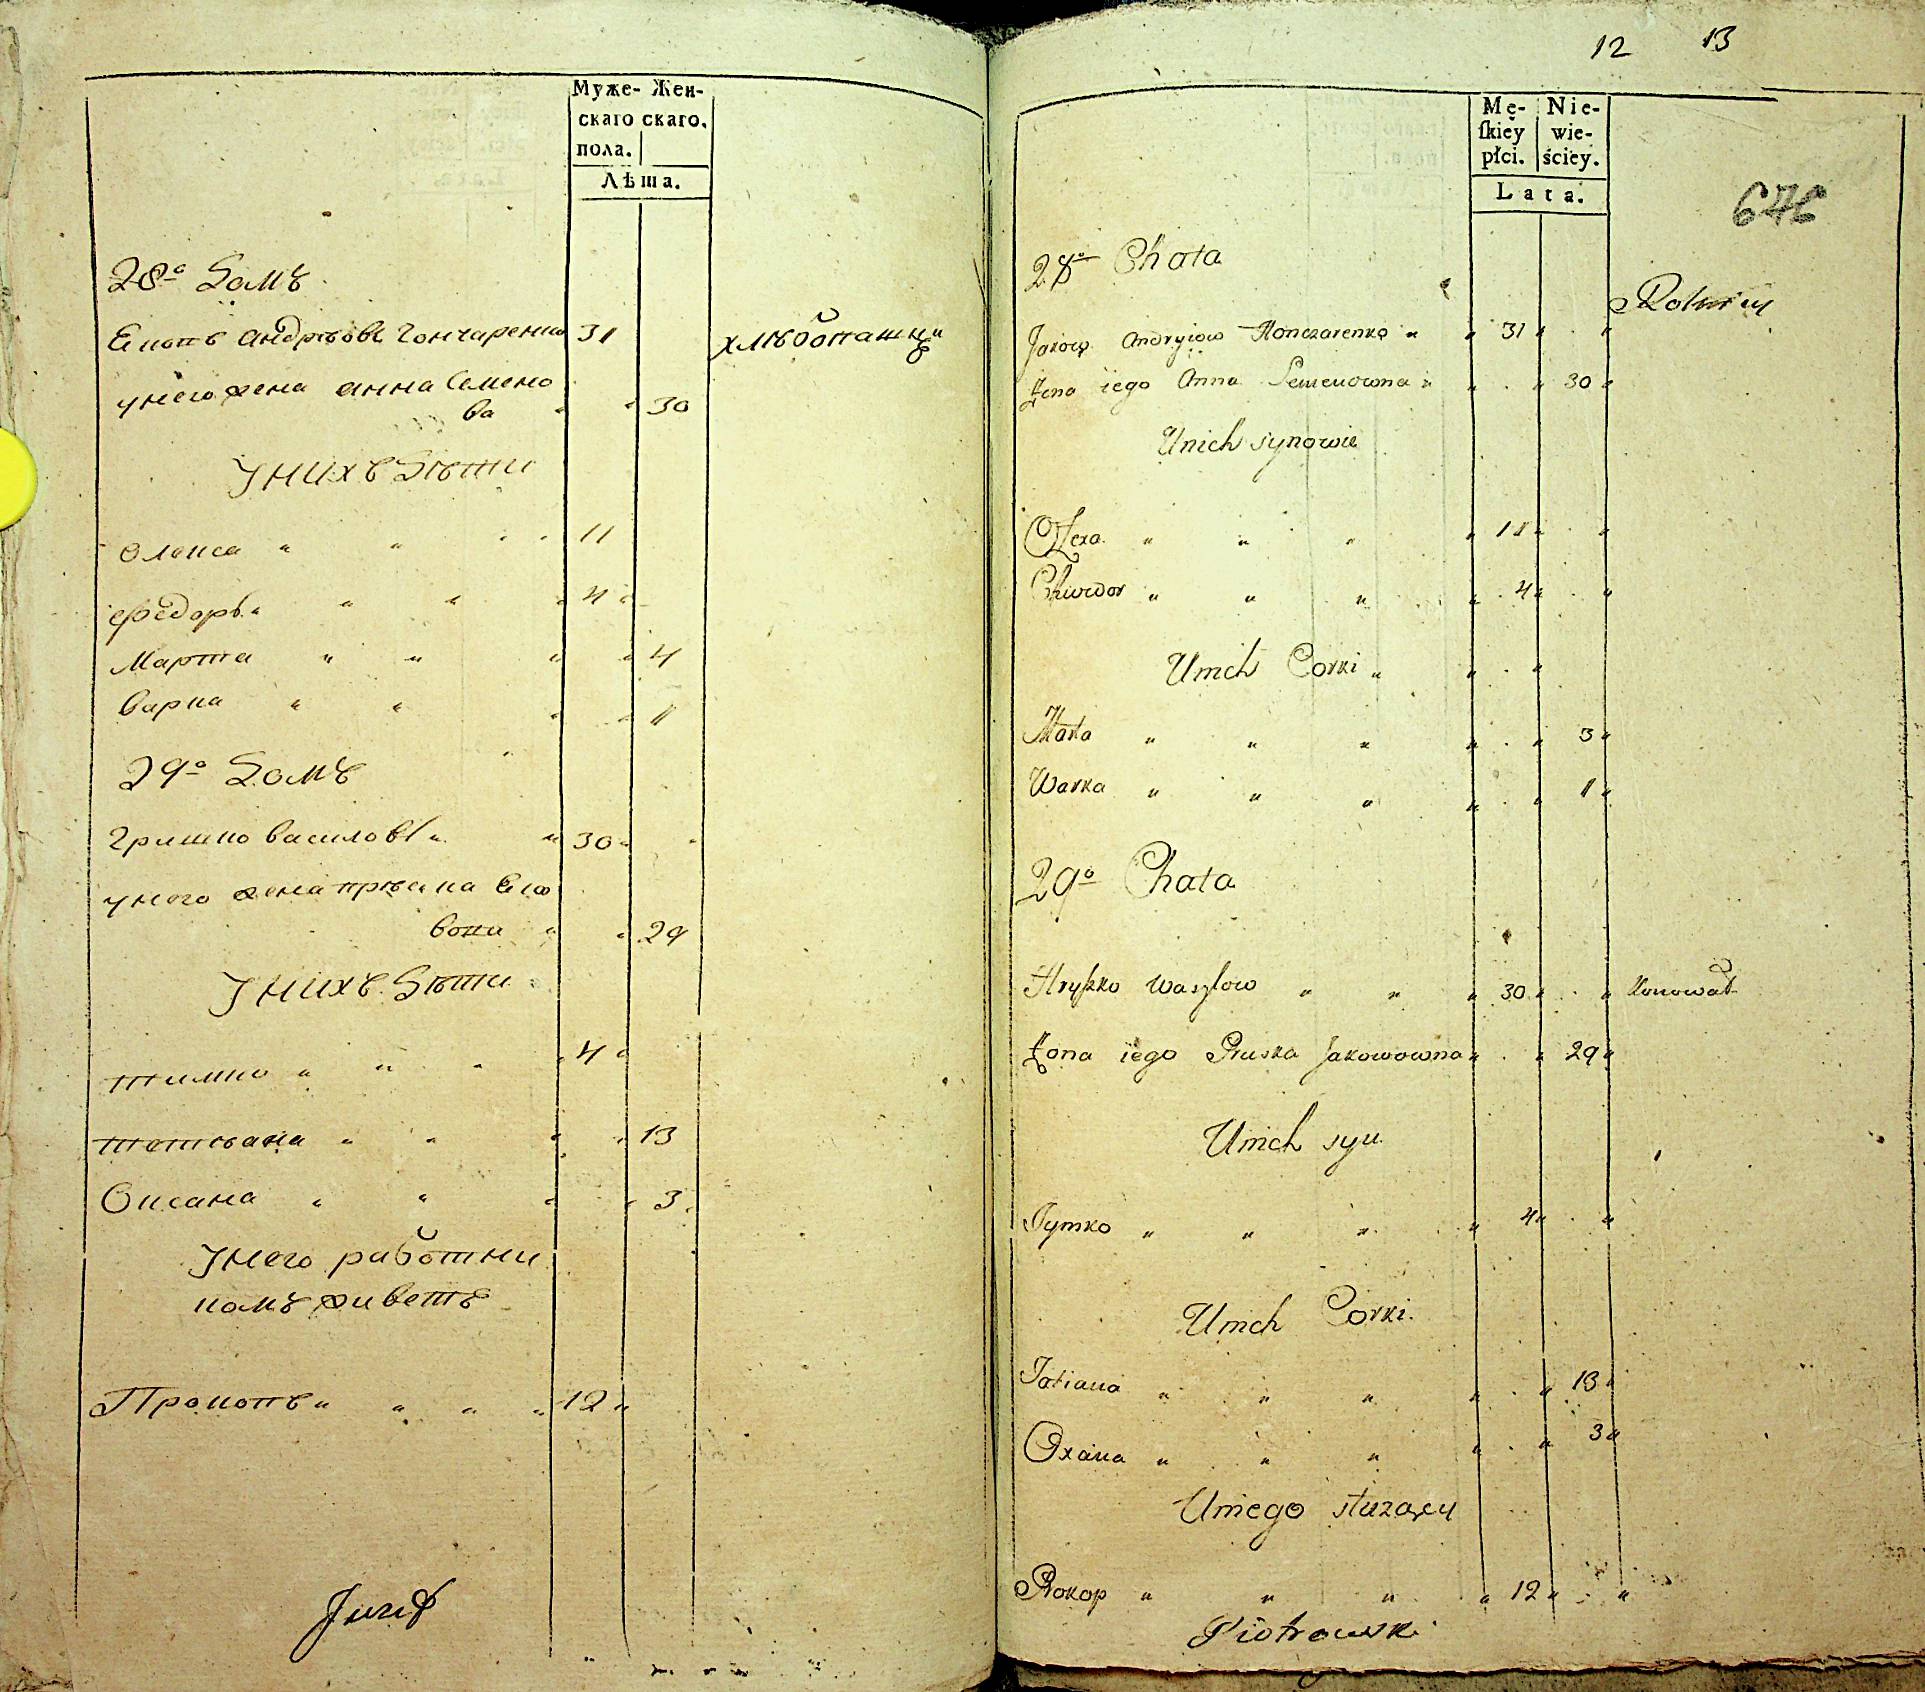 Муже- Жен-
скаго скаго.
пола.
Лѣта.
28º Домъ
Якопъ Андрѣовъ Гончаренко 31 хлѣбопашцы
у него жена Анна Семено
ва " " 30
У нихъ Дѣти
Олекса " " " " 11
Федоръ " " " " 4 "
Марта " " " " 4
Варка " " " " 1
29º Домъ
Гришко Василовъ " " 30 " "
у него жена Прѣска Яко
вовна " " 29
У нихъ Дѣти
Тимко " " " " 4 "
Тетяна " " " " 13
Оксана " " " " 3
У него работни
комъ живетъ
Прокопъ " " " " 12 "
12 13
Mę- Nie-
ſkiey wie-
płci. ściey.
Lata.
28º Chata
Rolnicy
Jakow Andryiow Honczarenko " " 31 " "
Żona iego Anna Semenowna " " " 30 "
U nich synowie
Olexa " " " " 11 " "
Chwedor " " " " 4 " "
U nich Corki " " "
Marta " " " " " 3 "
Warka " " " " " 1 "
29º Chata
Hryszko Wasylow " " " 30 " " Konował
Żona iego Pruska Jakowowna " " 29 "
U nich syn
Tymko " " " " 4 " "
U nich Corki
Tatiana " " " " " 13 "
Oxana " " " " " 3 "
U niego służący
Prokop " " " " 12 " "
Piotrowski